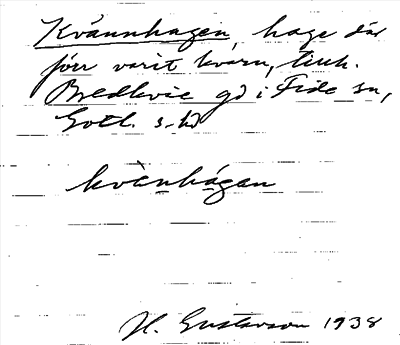 Kvännhagen, hage där
förr varit kvarn, tillh.
Bredkvie gd i Fide sn,
Gotl. s. hd
kvànhágan
H. Gustavson 1938